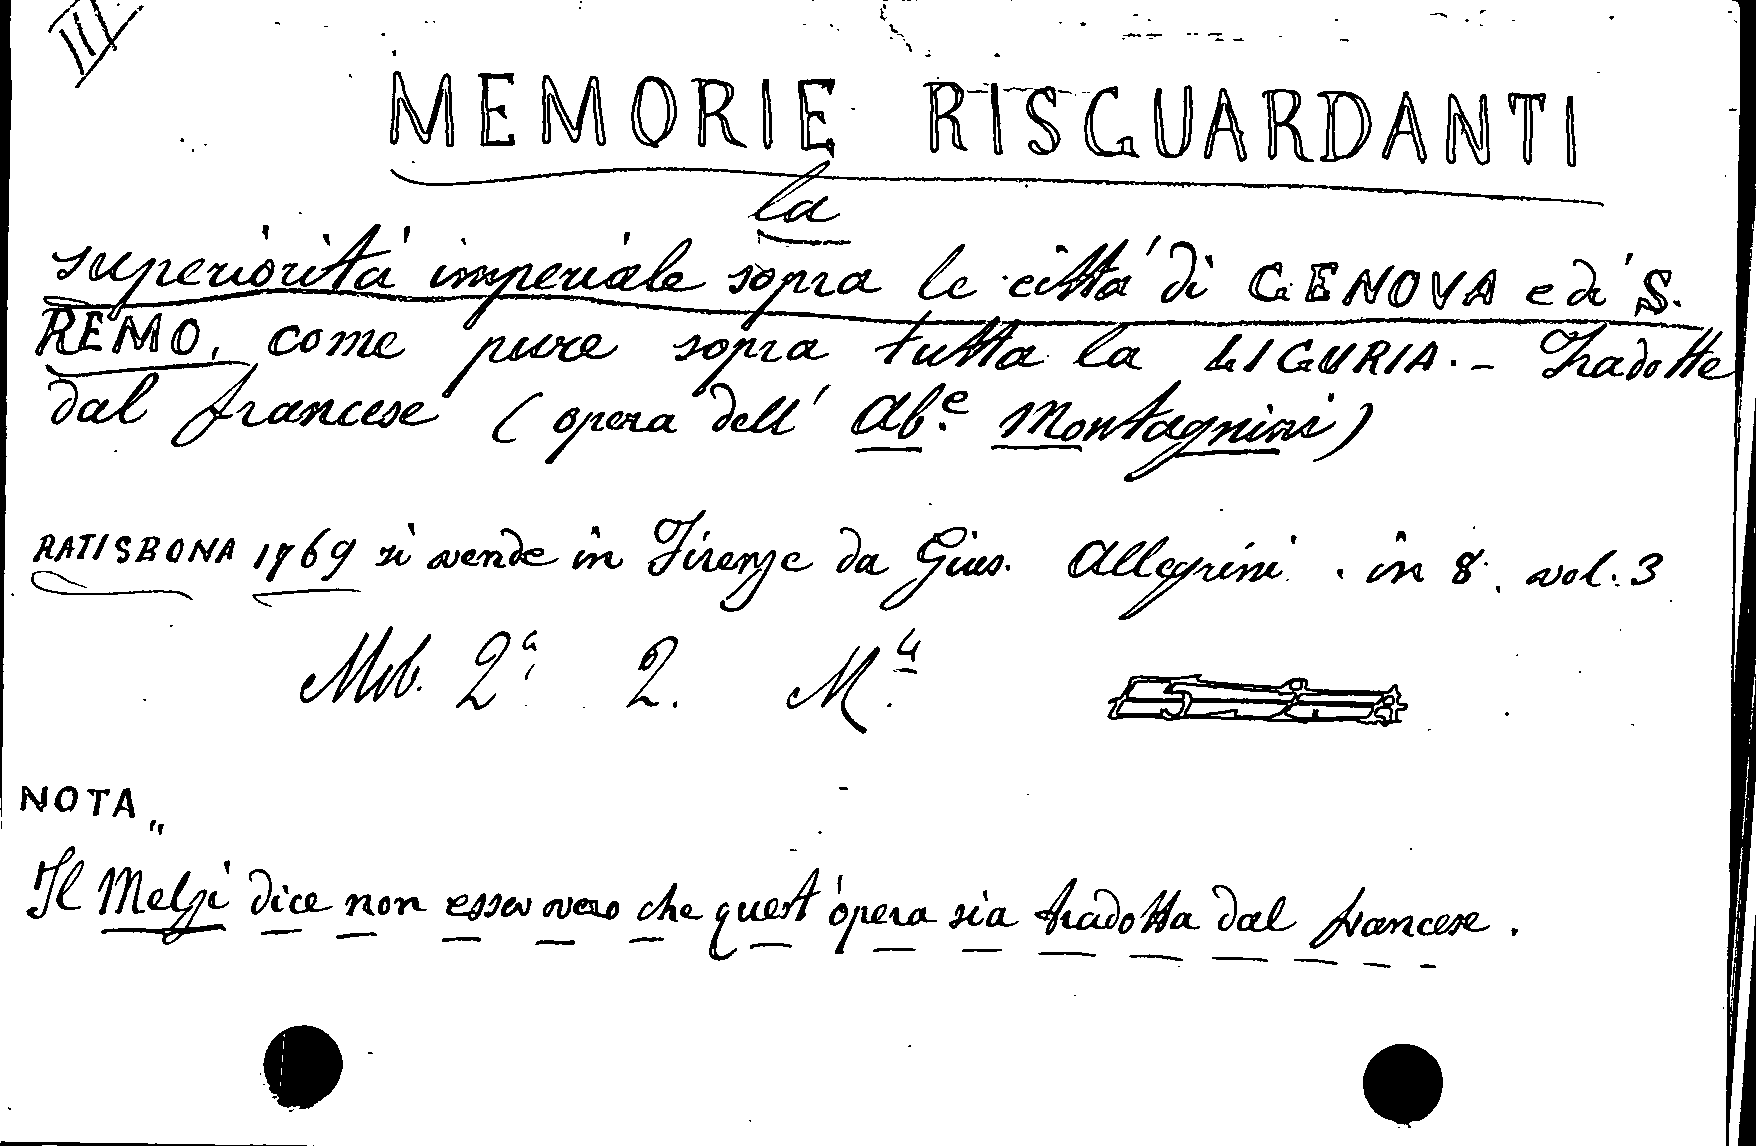 III
MEMORIE RISGUARDANTI
la
superiorità imperiale sopra le città di GENOVA e di S.
REMO, come pure sopra tutta la LIGURIA. - Tradotte
dal francese (opera dell' Ab.e Montagnini)
RATISBONA 1769 si vende in Firenze da Gius. Allegrini. in 8. vol. 3
2a 2. M.
NOTA„
Il Melzi dice non esser vero che quest'opera sia tradotta dal francese.